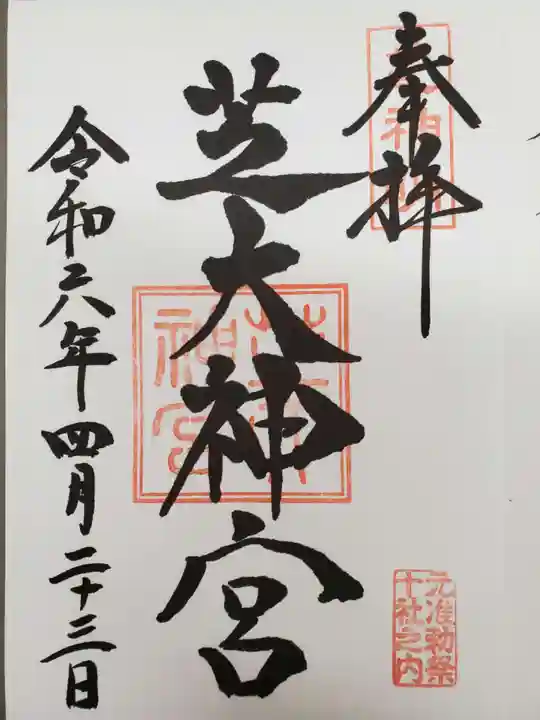 奉拝
芝大神宮
令和六年四月二十三日
元准勅祭
十社之内